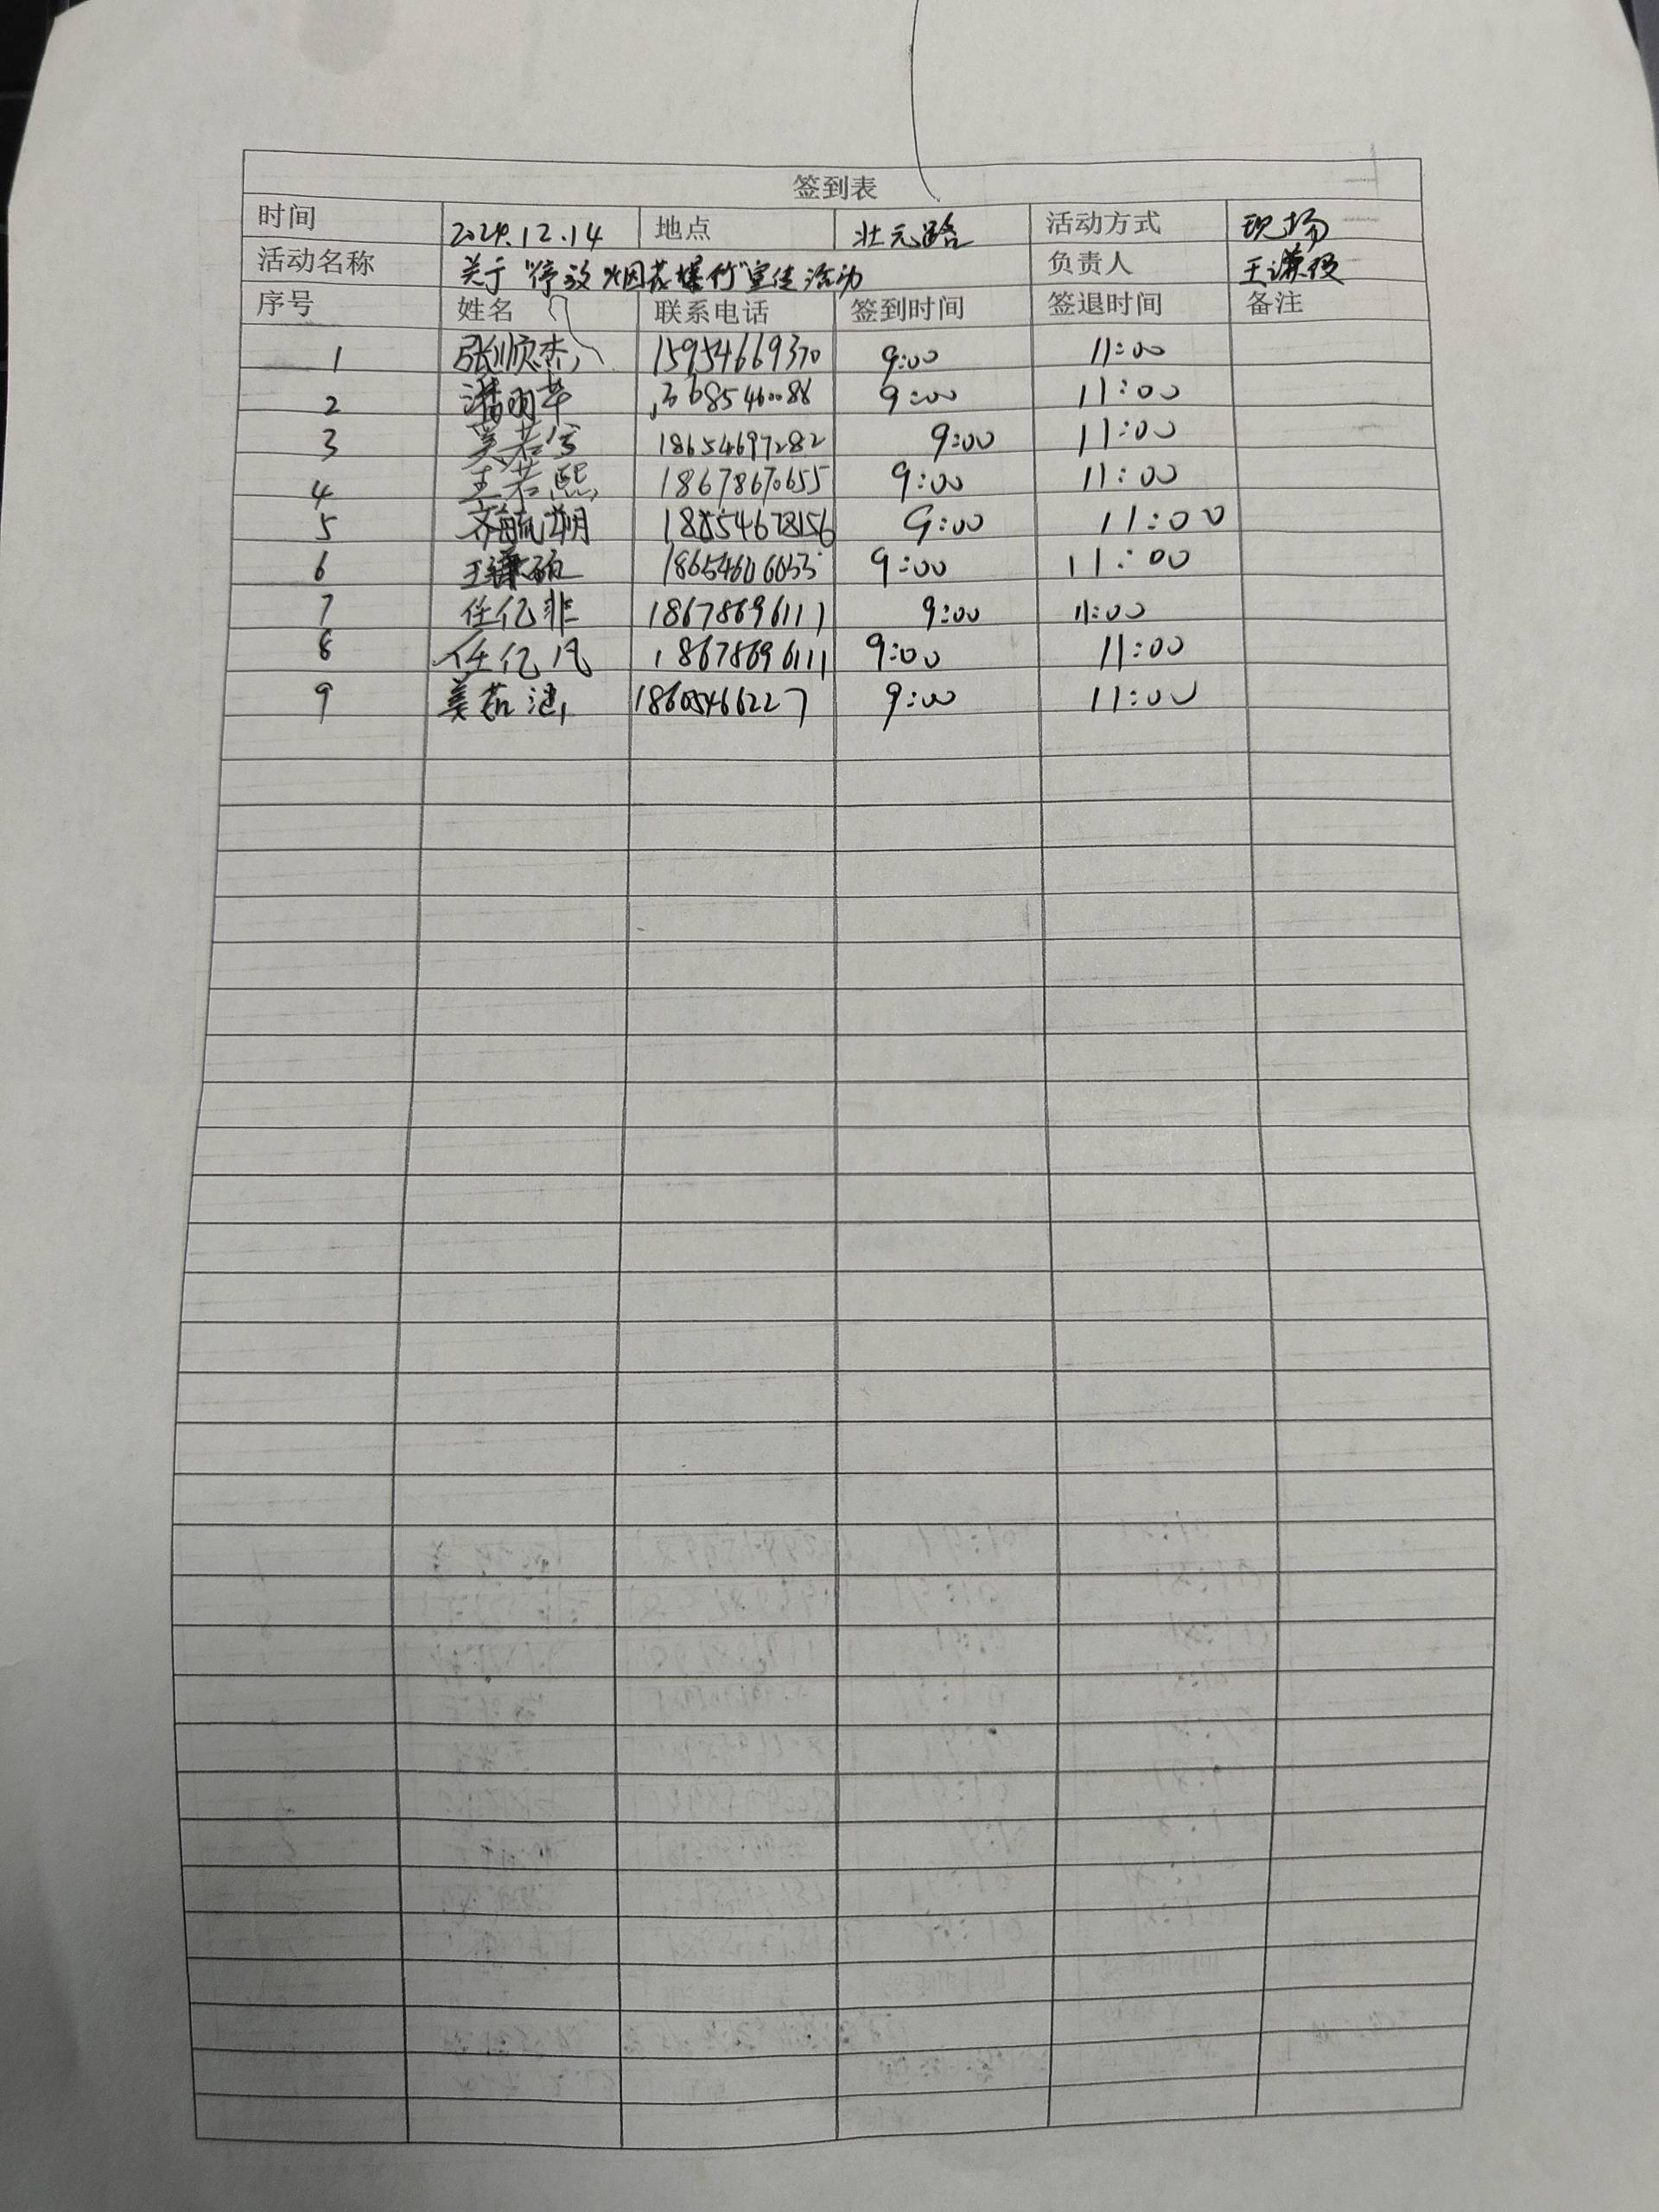 签到表
时间 2024.12.14 地点 壮元路 活动方式 现场
活动名称 关于“停放烟花爆竹”宣传活动 负责人 王谦硕
序号 姓名 联系电话 签到时间 签退时间 备注
1 张顺杰 15954669370 9:00 11:00
2 潘明华 13685460088 9:00 11:00
3 吴若兮 18654697282 9:00 11:00
4 王若熙 18678670655 9:00 11:00
5 齐毓玥 9:00 11:00
6 王谦硕 18654606033 9:00 11:00
7 任亿非 18678696111 9:00 11:00
8 任亿凡 18678696111 9:00 11:00
9 姜茹 18605466227 9:00 11:00